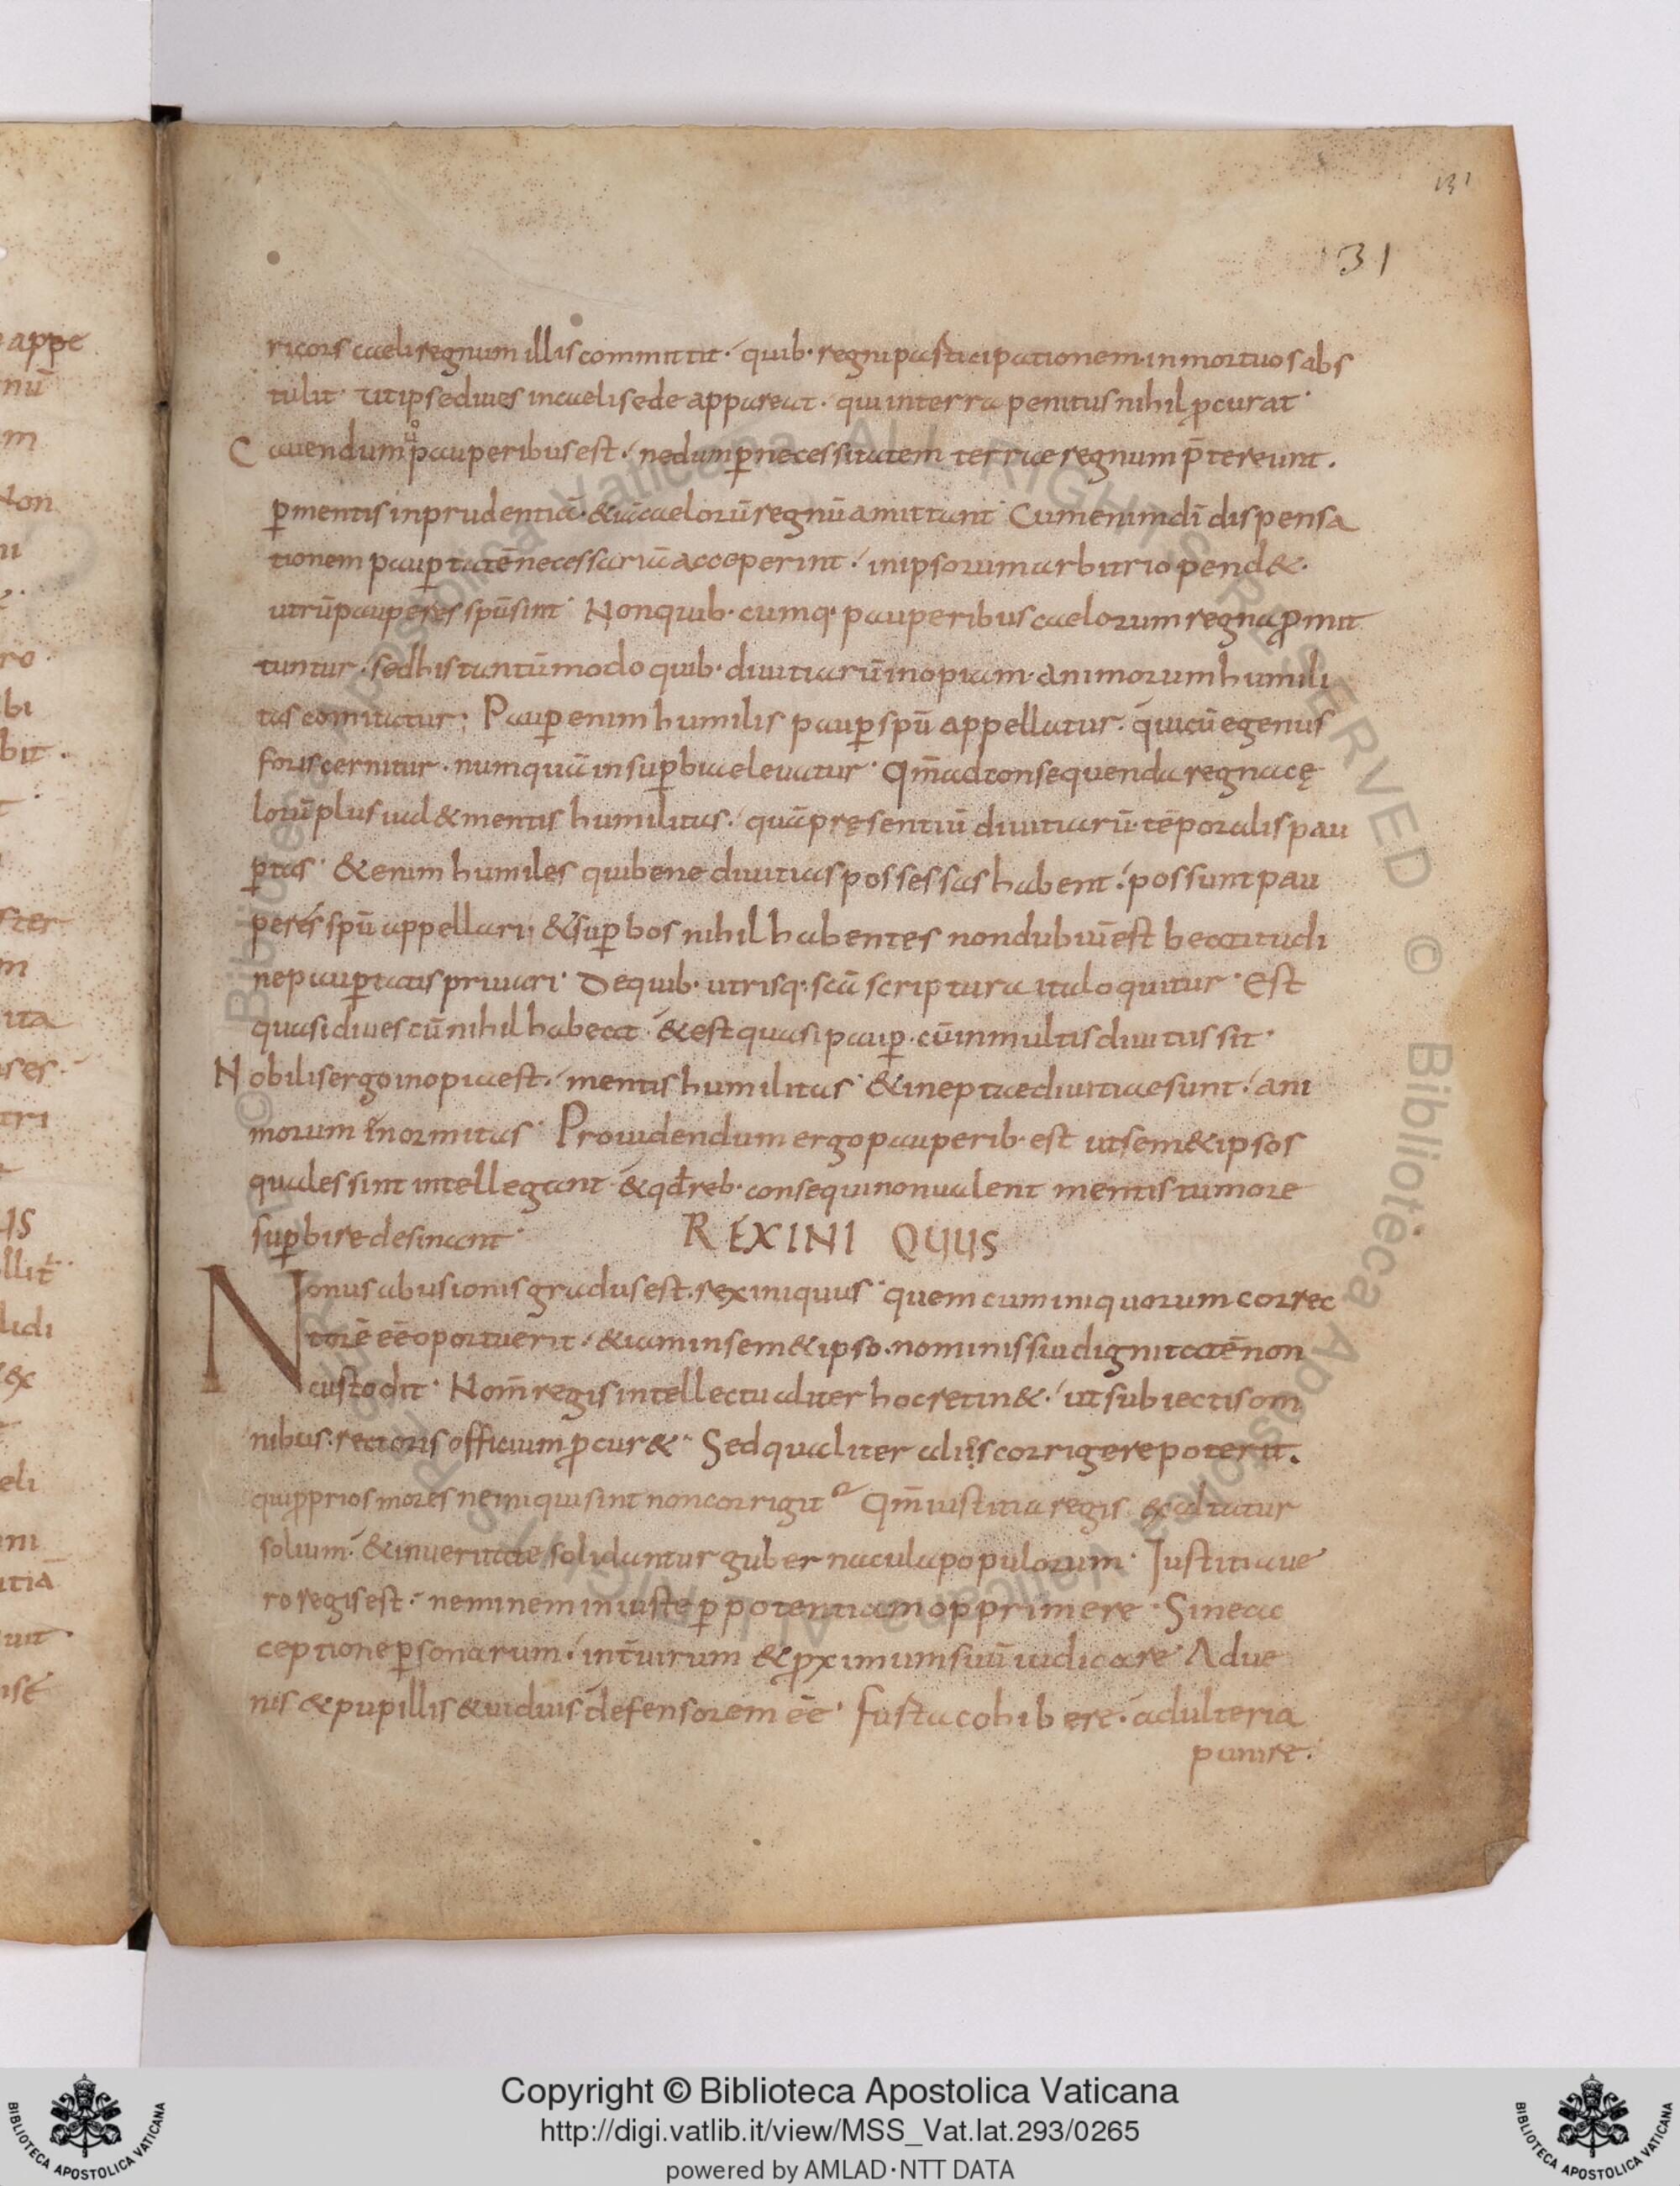 131
131
ricors caeli regnum illis committit· quib· regni participationem· in mortuos abs
tulit· ut ipse dives in caeli sede appareat· qui in terra penitus nihil ꝓcurat·
Cavendum uº pauperibus est· ne dum ꝑ necessitatem terrae regnum p̄tereunt·
ꝑ mentis inprudentiā· & iā caelorū regnū amittant· Cum enim dī dispensa
tionem pauꝑtatē necessariā acceperint· in ipsorum arbitrio pend&·
utrū pauperes spū sint· Non quib·cumq· pauperibus caelorum regna ꝓmit
tuntur· sed his tantūmodo quib· divitiarū inopiam· animorum humili
tas comitatur; Pauꝑ enim humilis pauꝑ spū appellatur· qui cū egenus
foris cernitur· numquā in suꝑbia elevatur· Qm̄ ad consequenda regna cę
lorū plus vál& mentis humilitas· quā pręsentiū divitiarū· tēporalis pau
ꝑtas· &enim humiles qui bene divitias possessas habent· possunt pau
peres spū appellari; & suꝑbos nihil habentes non dubiū est beatitudi
ne pauꝑtatis privari· De quib· utrisq· scā scriptura ita loquitur· Est
quasi dives cū nihil habeat· & est quasi pauꝑ· cū in multis divitiis sit·
Nobilis ergo inopia est· mentis humilitas· & ineptae divitiae sunt· ani
morum enormitas· Providendum ergo pauperib· est ut sem&ipsos
quales sint intellegant· & qđ reb· consequi non valent mentis tumore
suꝑbire desinant·
REX INIQUUS
Nonus abusionis gradus est· rex iniquus· quem cum iniquorum correc
torē eē oportuerit· & iam in sem&ipso· nominis sui dignitatē non
custodit· Nom̄ regis intellectualiter hoc retin&· ut subiectis om
nibus· rectoris officium ꝓcur&· Sed qualiter aliis corrigere poterit·
qui ꝓprios mores ne iniqui sint non corrigit Qm̄ iustitia regis exaltatur
solium· & in veritate solidantur gubernacula populorum· Iustitia ve
ro regis est· neminem iniuste ꝑ potentiam opprimere· Sine ac
ceptione ꝑsonarum· int̄ virum & ꝓximum suū iudicare· Adve
nis & pupillis & viduis defensorem eē· furta cohibere· adulteria
punire·
Copyright © Biblioteca Apostolica Vaticana
http://digi.vatlib.it/view/MSS_Vat.lat.293/0265
powered by AMLAD·NTT DATA